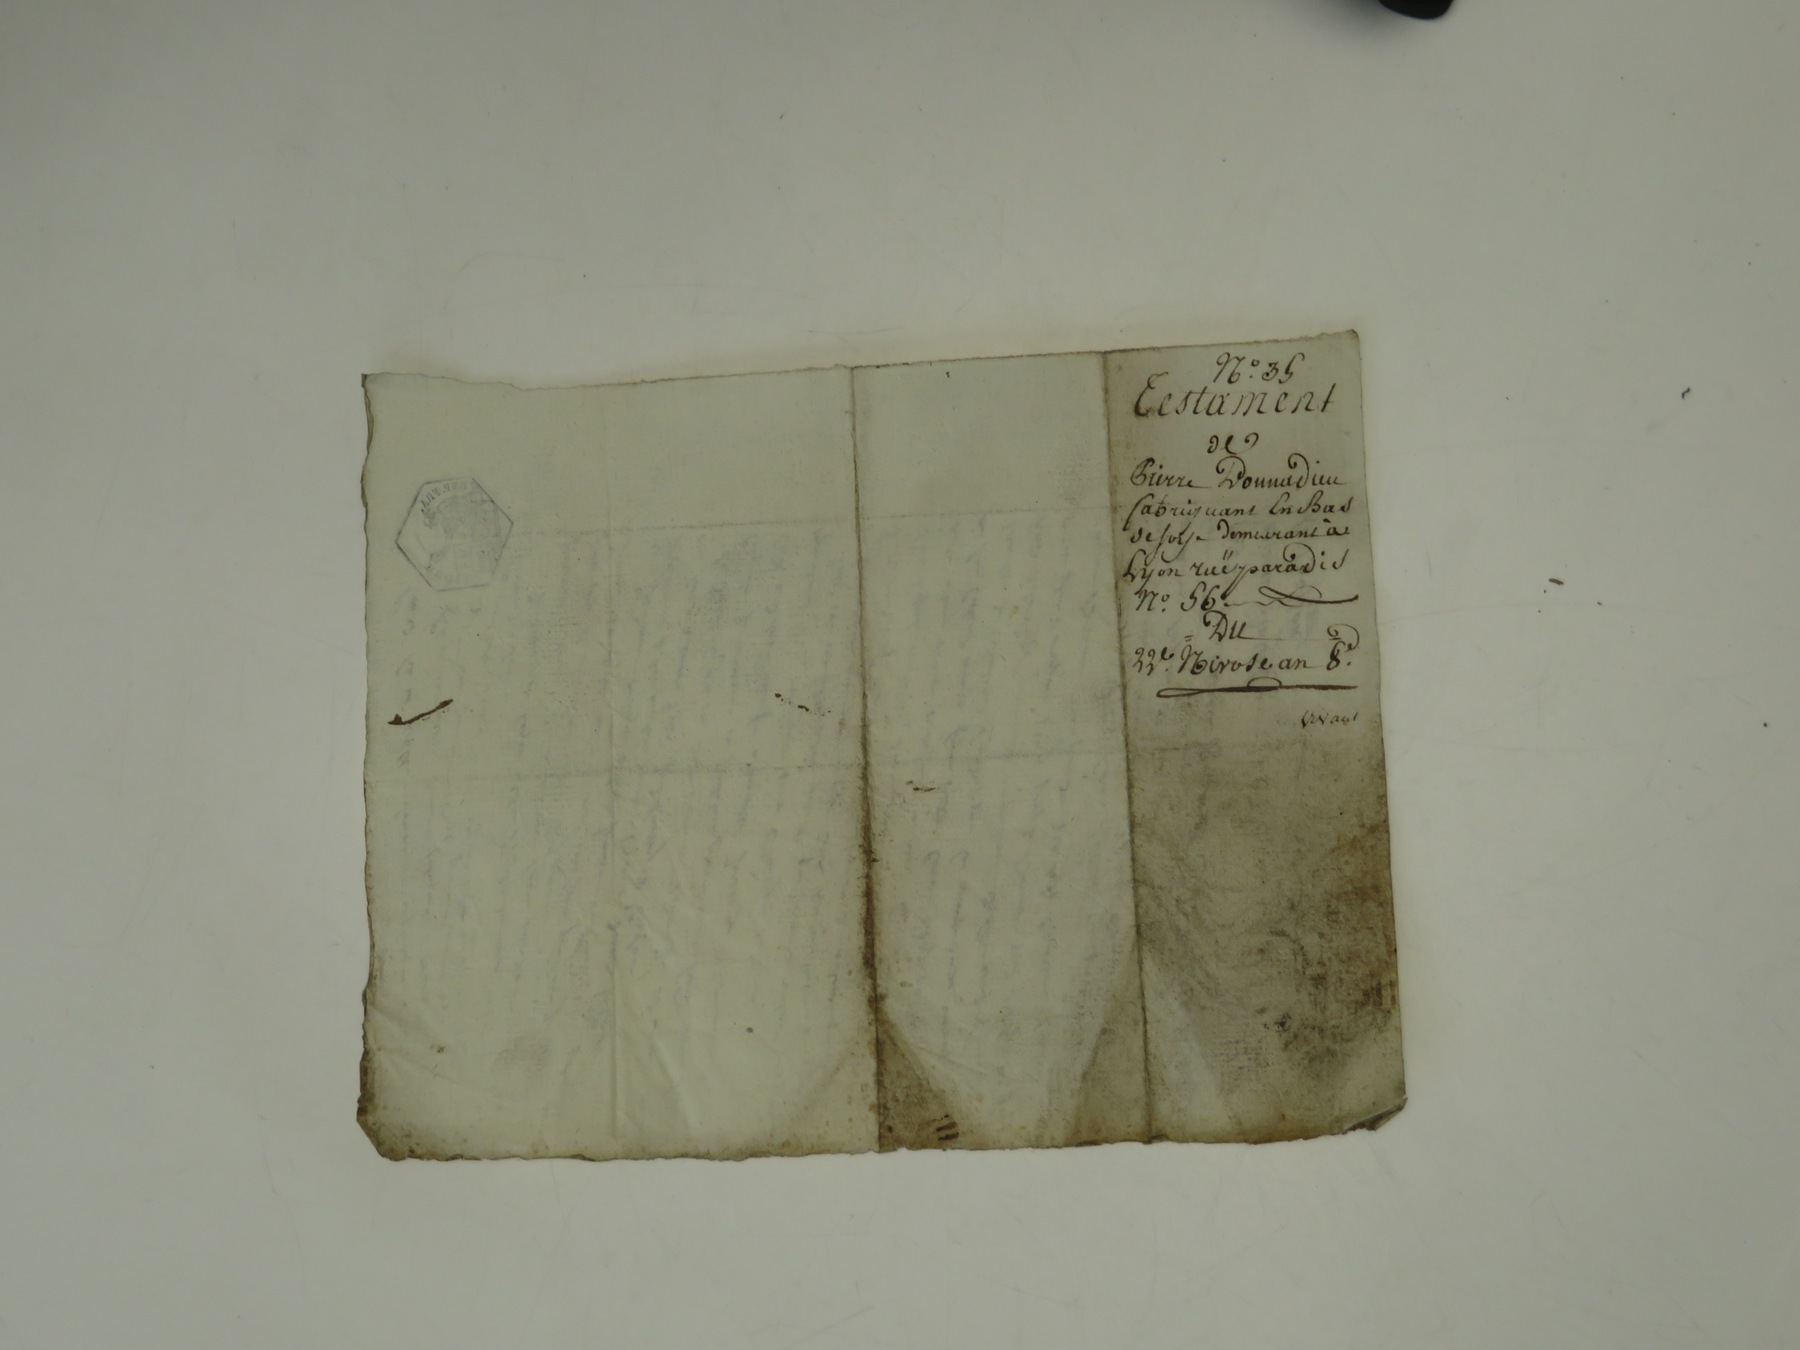 N.º 35
Testament
de
Pierre Donnadieu
fabriquant En Bas
de soÿe demeurant à
Lyon ruë paradis
N.º 56
Du
22.e Nivose an 8.e